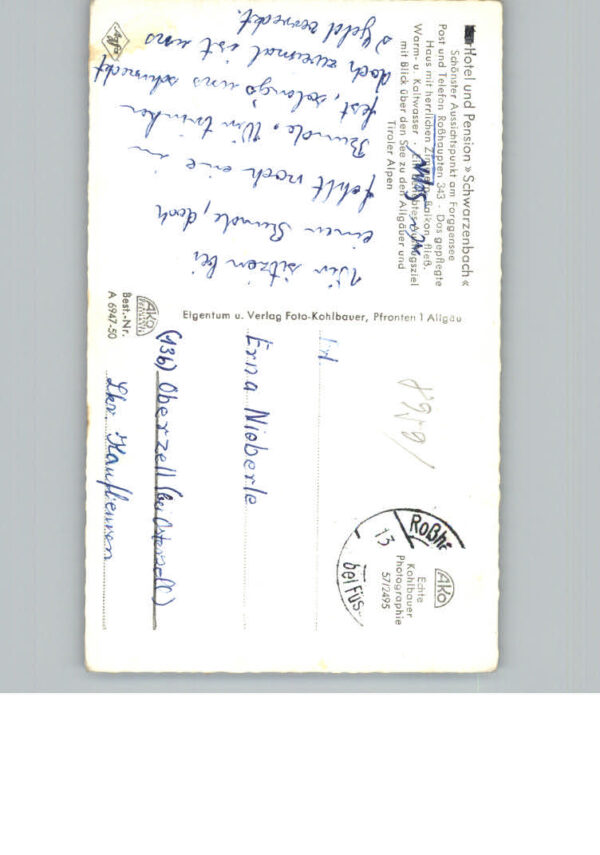 Hotel und Pension »Schwarzenbach«
Schönster Aussichtspunkt am Forggensee
Post und Telefon Roßhaupten 343 · Das gepflegte
Haus mit herrlichen Balkon, fließ.
Warm- u. Kaltwasser ·
mit Blick über den See zu den Allgäuer und
Tiroler Alpen
Wir sitzen bei
einer Runde, doch
fehlt noch eine im
Bunde. Wir trinken
fest, solang's uns schmeckt
doch zweimal ist uns
's Geld verreckt.
Agfa
Eigentum u. Verlag Foto-Kohlbauer, Pfronten 1 Allgäu
AKO
Best.-Nr.
A 6947-50
AKO
Echte
Kohlbauer
Photographie
57/2495
Roßh
13
bei Füs-
Frl.
Erna Nieberle
(13b) Oberzell (bei Osterzell)
Lkr. Kaufbeuren